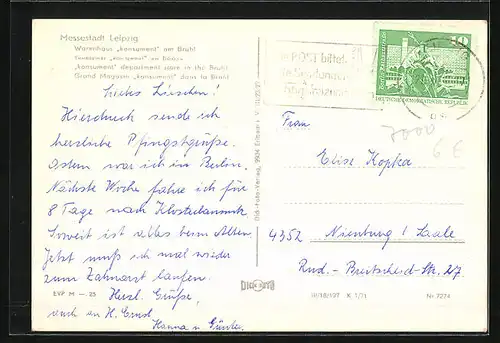 Messestadt Leipzig
Warenhaus „konsument" am Brühl
„konsument" department store in the Brühl
Grand Magasin „konsument" dans la Brühl
Liebes Lieschen!
Hierdurch sende ich
herzliche Pfingstgrüße.
Ostern war ich in Berlin.
Nächste Woche fahre ich für
8 Tage nach
Soweit ist alles beim Alten
Jetzt muß ich mal wieder
zum Zahnarzt laufen.
Herzl. Grüße,
auch an H. Ernst
Hanna u. Günter
EVP M -.25
DEUTSCHE DEMOKRATISCHE REPUBLIK
10
POST bittet
7000
6 €
Frau
Elise Kopka
4352 Nienburg / Saale
Rud.-Breitscheid-Str. 27
III/18/197 K 1/71
Nr. 7274